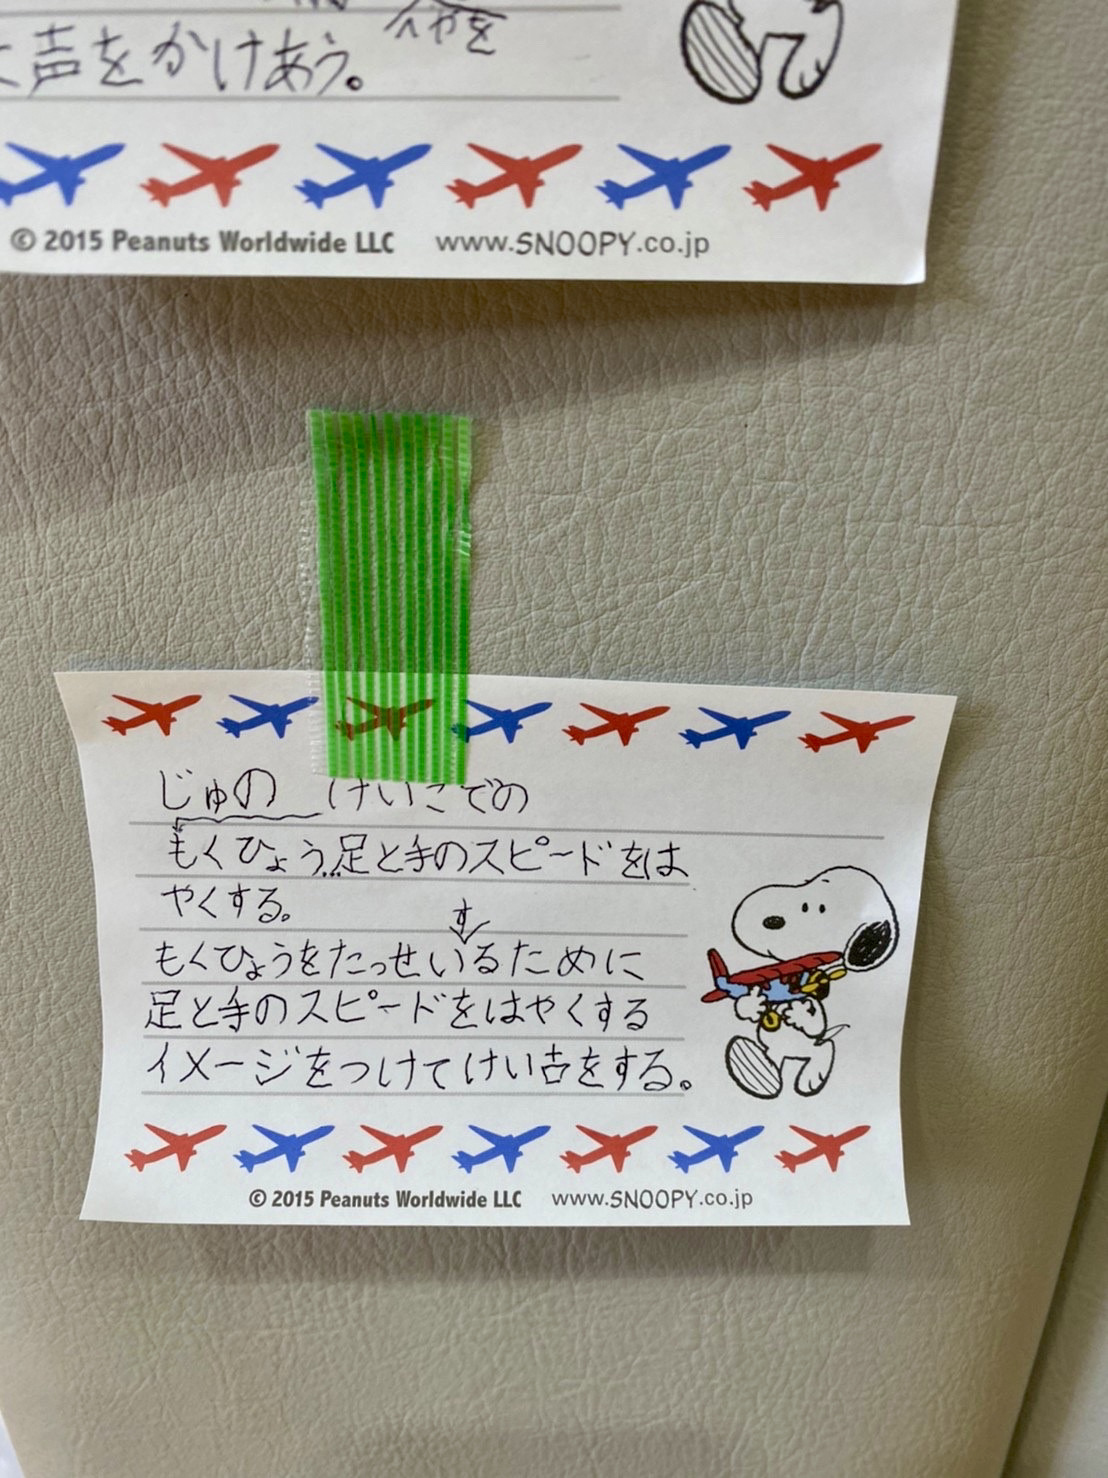 へやを
声をかけあう。
© 2015 Peanuts Worldwide LLC www.SNOOPY.co.jp
じゅの けいこでの
もくひょう…足と手のスピードをは
やくする。
す
もくひょうをたっせいるために
足と手のスピードをはやくする
イメージをつけてけい古をする。
© 2015 Peanuts Worldwide LLC www.SNOOPY.co.jp